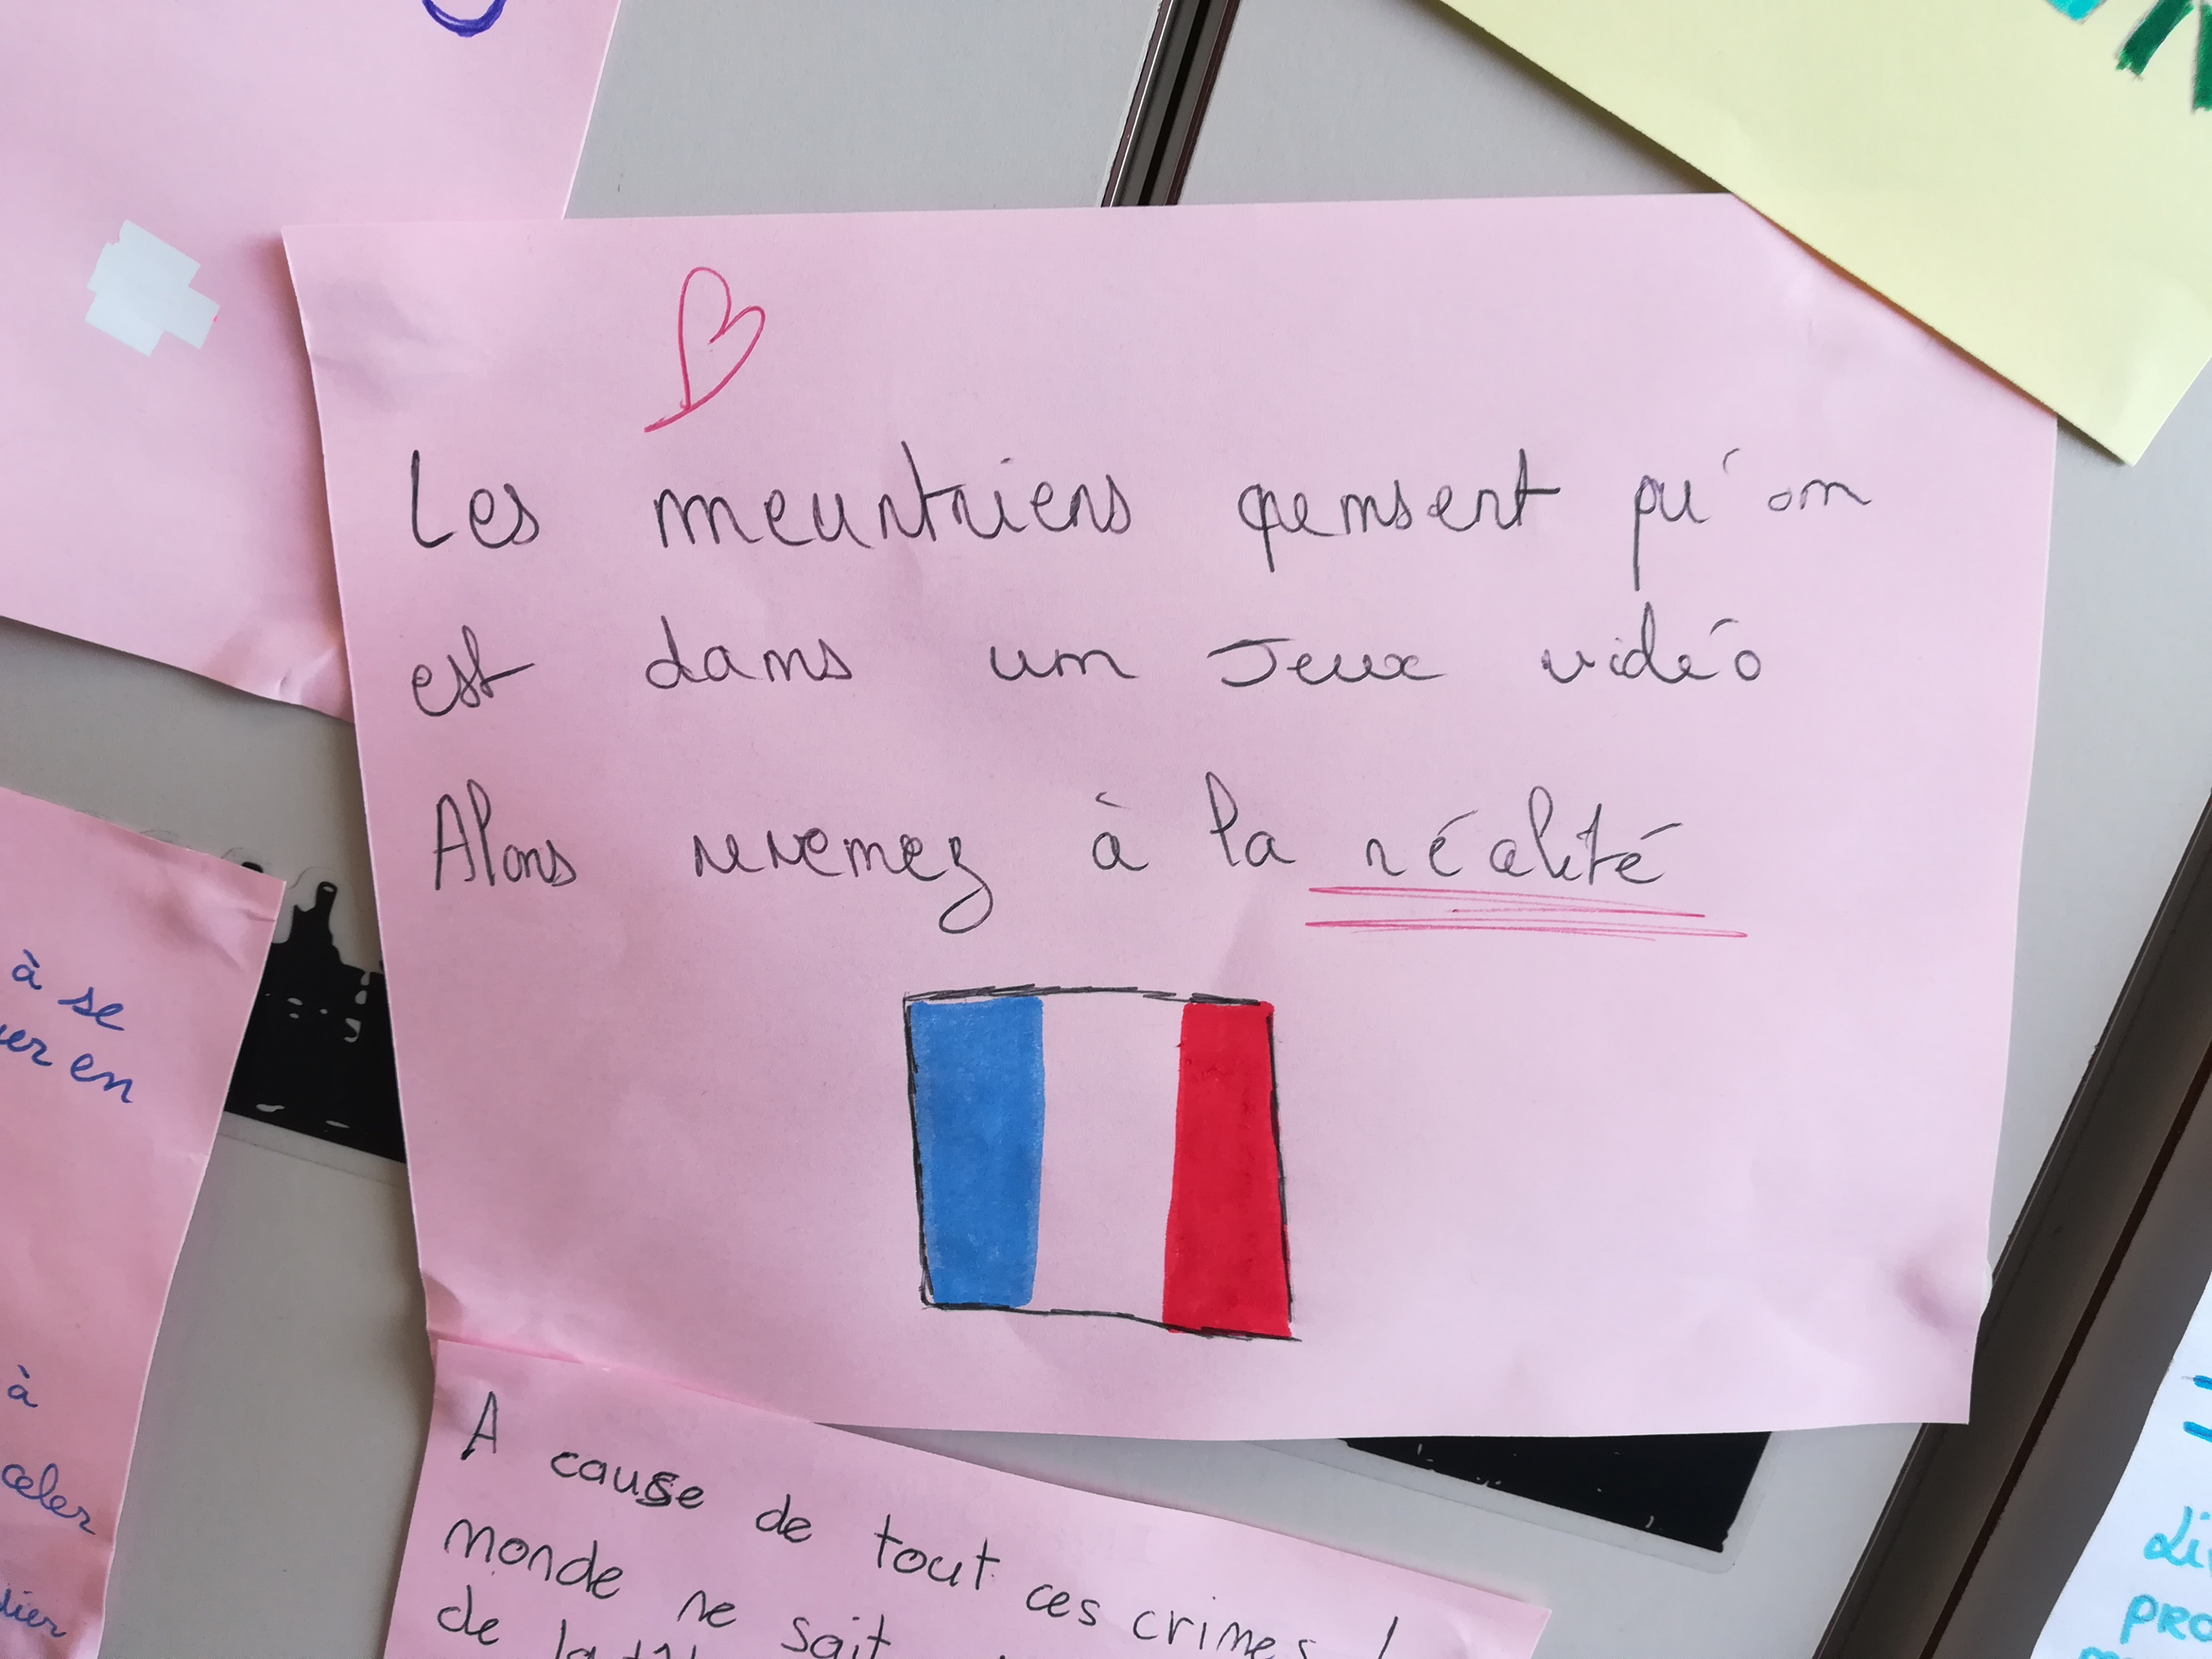 Les meurtriers pensent qu'on
est dans un Jeux vidéo
Alors revenez à la réalité
à se
er en
à
celer
dier
A cause de tout ces crimes !
monde ne sait
de la
pro